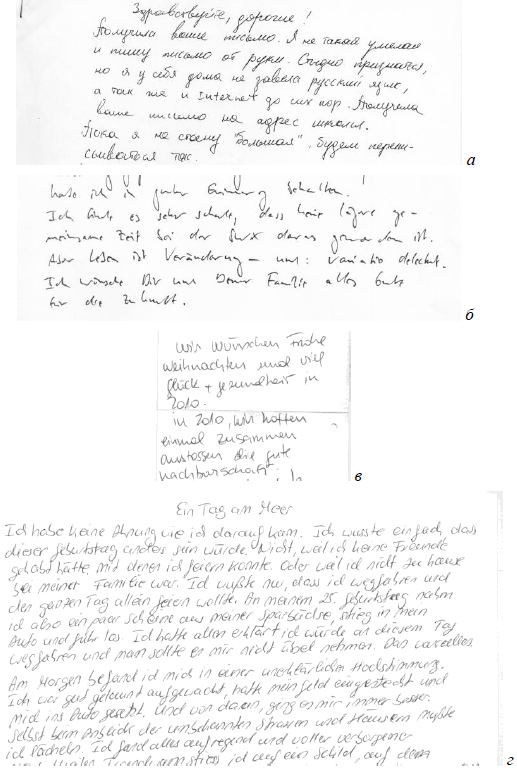 Здравствуйте, дорогие!
Получила ваше письмо. Я не такая умелая
и пишу письмо от руки. Стыдно признаться,
но я у себя дома не завела русский язык,
а так же и Internet до сих пор. Получила
ваше письмо на адрес школы.
Пока я не схожу "большая". Будем перепи-
сываться так.
а
habe ich in guter Erinnerung behalten.
Ich finde es sehr schade, dass keine längere ge-
meinsame Zeit bei der daraus geworden ist.
Aber Leben ist Veränderung – uns: variatio delectat.
Ich wünsche Dir und Deiner Familie alles Gute
für die Zukunft.
б
Wir wünschen Frohe
Weihnachten und viel
Glück + gesundheit in
2010.
in 2010, wir hoffen
einmal zusammen
anstossen die gute
nachbarschaft
в
Ein Tag am Meer
Ich habe keine Ahnung wie ich darauf kam. Ich wusste einfach, dass
dieser Geburtstag anders sein würde. Nicht, weil ich keine Freunde
gehabt hätte mit denen ich feiern konnte. Oder weil ich nicht zu hause
bei meiner Familie war. Ich wußte nur, dass ich wegfahren und
den ganzen Tag allein feiern wollte. An meinem 25. Geburtstag nahm
ich also ein paar Scheine aus meiner Sparbüchse, stieg in mein
Auto und fuhr los. Ich hatte allen erklärt ich würde an diesem Tag
wegfahren und man sollte es mir nicht übel nehmen. Das war alles.
Am Morgen befand ich mich in einer unerklärlichen Hochstimmung.
Ich war gut gelaunt aufgewacht, hatte mein Geld eingesteckt und
mich ins Auto gesetzt. Und von da an, ging es mir immer besser.
Selbst beim Anblick der unbekannten Strassen und Häusern mußte
ich lächeln. Ich fand alles aufregend und voller verborgener
ich auf ein Schild, auf dem
г